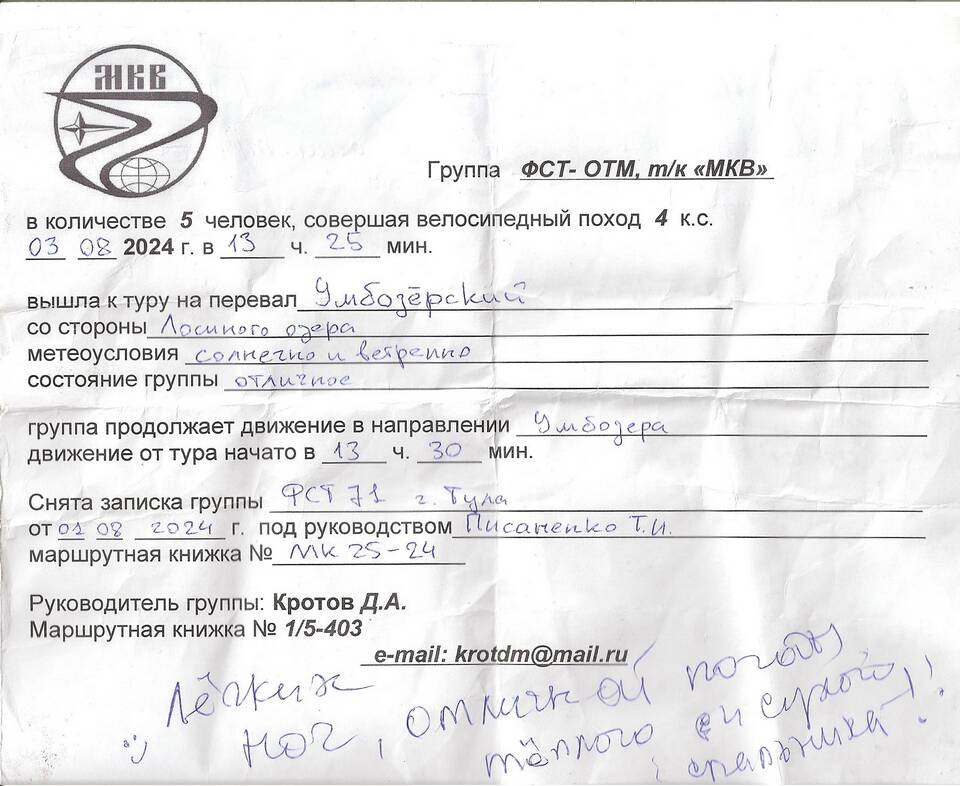 МКВ
Группа ФСТ- ОТМ, т/к «МКВ»
в количестве 5 человек, совершая велосипедный поход 4 к.с.
03 08 2024 г. в 13 ч. 25 мин.
вышла к туру на перевал Умбозёрский
со стороны Лосиного озера
метеоусловия солнечно и ветренно
состояние группы отличное
группа продолжает движение в направлении Умбозера
движение от тура начато в 13 ч. 30 мин.
Снята записка группы ФСТ 71 г. Тула
от 01 08 2024 г. под руководством Писаненко Т.И.
маршрутная книжка № МК 25-24
Руководитель группы: Кротов Д.А.
Маршрутная книжка № 1/5-403
e-mail: krotdm@mail.ru
Лёгких
ног, отличной погоды,
тёплого и сухого
спальника!!